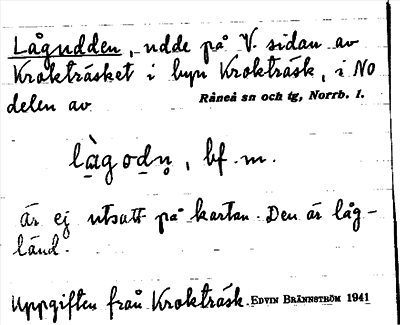 Lågudden, udde på V. sidan av
Krokträsket i byn Krokträsk, i NO
delen av Råneå sn och tg, Norrb. l.
làgodn̥, bf. m.
är ej utsatt på kartan. Den är låg-
länd.
Uppgiften från Krokträsk. EDVIN BRÄNNSTRÖM 1941